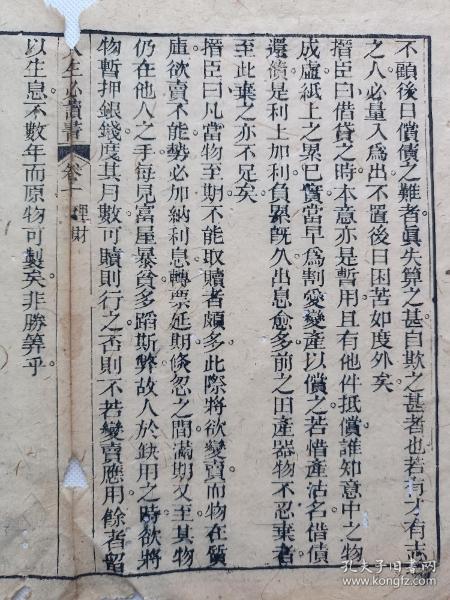 不顧後日償債之難者眞失算之甚自欺之甚者也若有才有志
之人必量入爲出不置後日困苦如度外矣
搢臣曰借貸之時本意亦是暫用且有他件抵償誰知意中之物
成虛紙上之累已實當早爲割愛變產以償之若惜產沽名借債
還債是利上加利負累旣久出息愈多前之田產器物不忍棄者
至此棄之亦不足矣
搢臣曰凡當物至期不能取贖者頗多此際將欲變賣而物在質
庫欲賣不能勢必加納利息轉票延期倏忽之間滿期又至其物
仍在他人之手每見富屋暴貧多蹈斯弊故人於缺用之時欲將
物暫押銀錢度其月數可贖則行之否則不若變賣應用餘者留
人生必讀書 卷十 理財
以生息不數年而原物可製矣非勝算乎
孔夫子旧书网